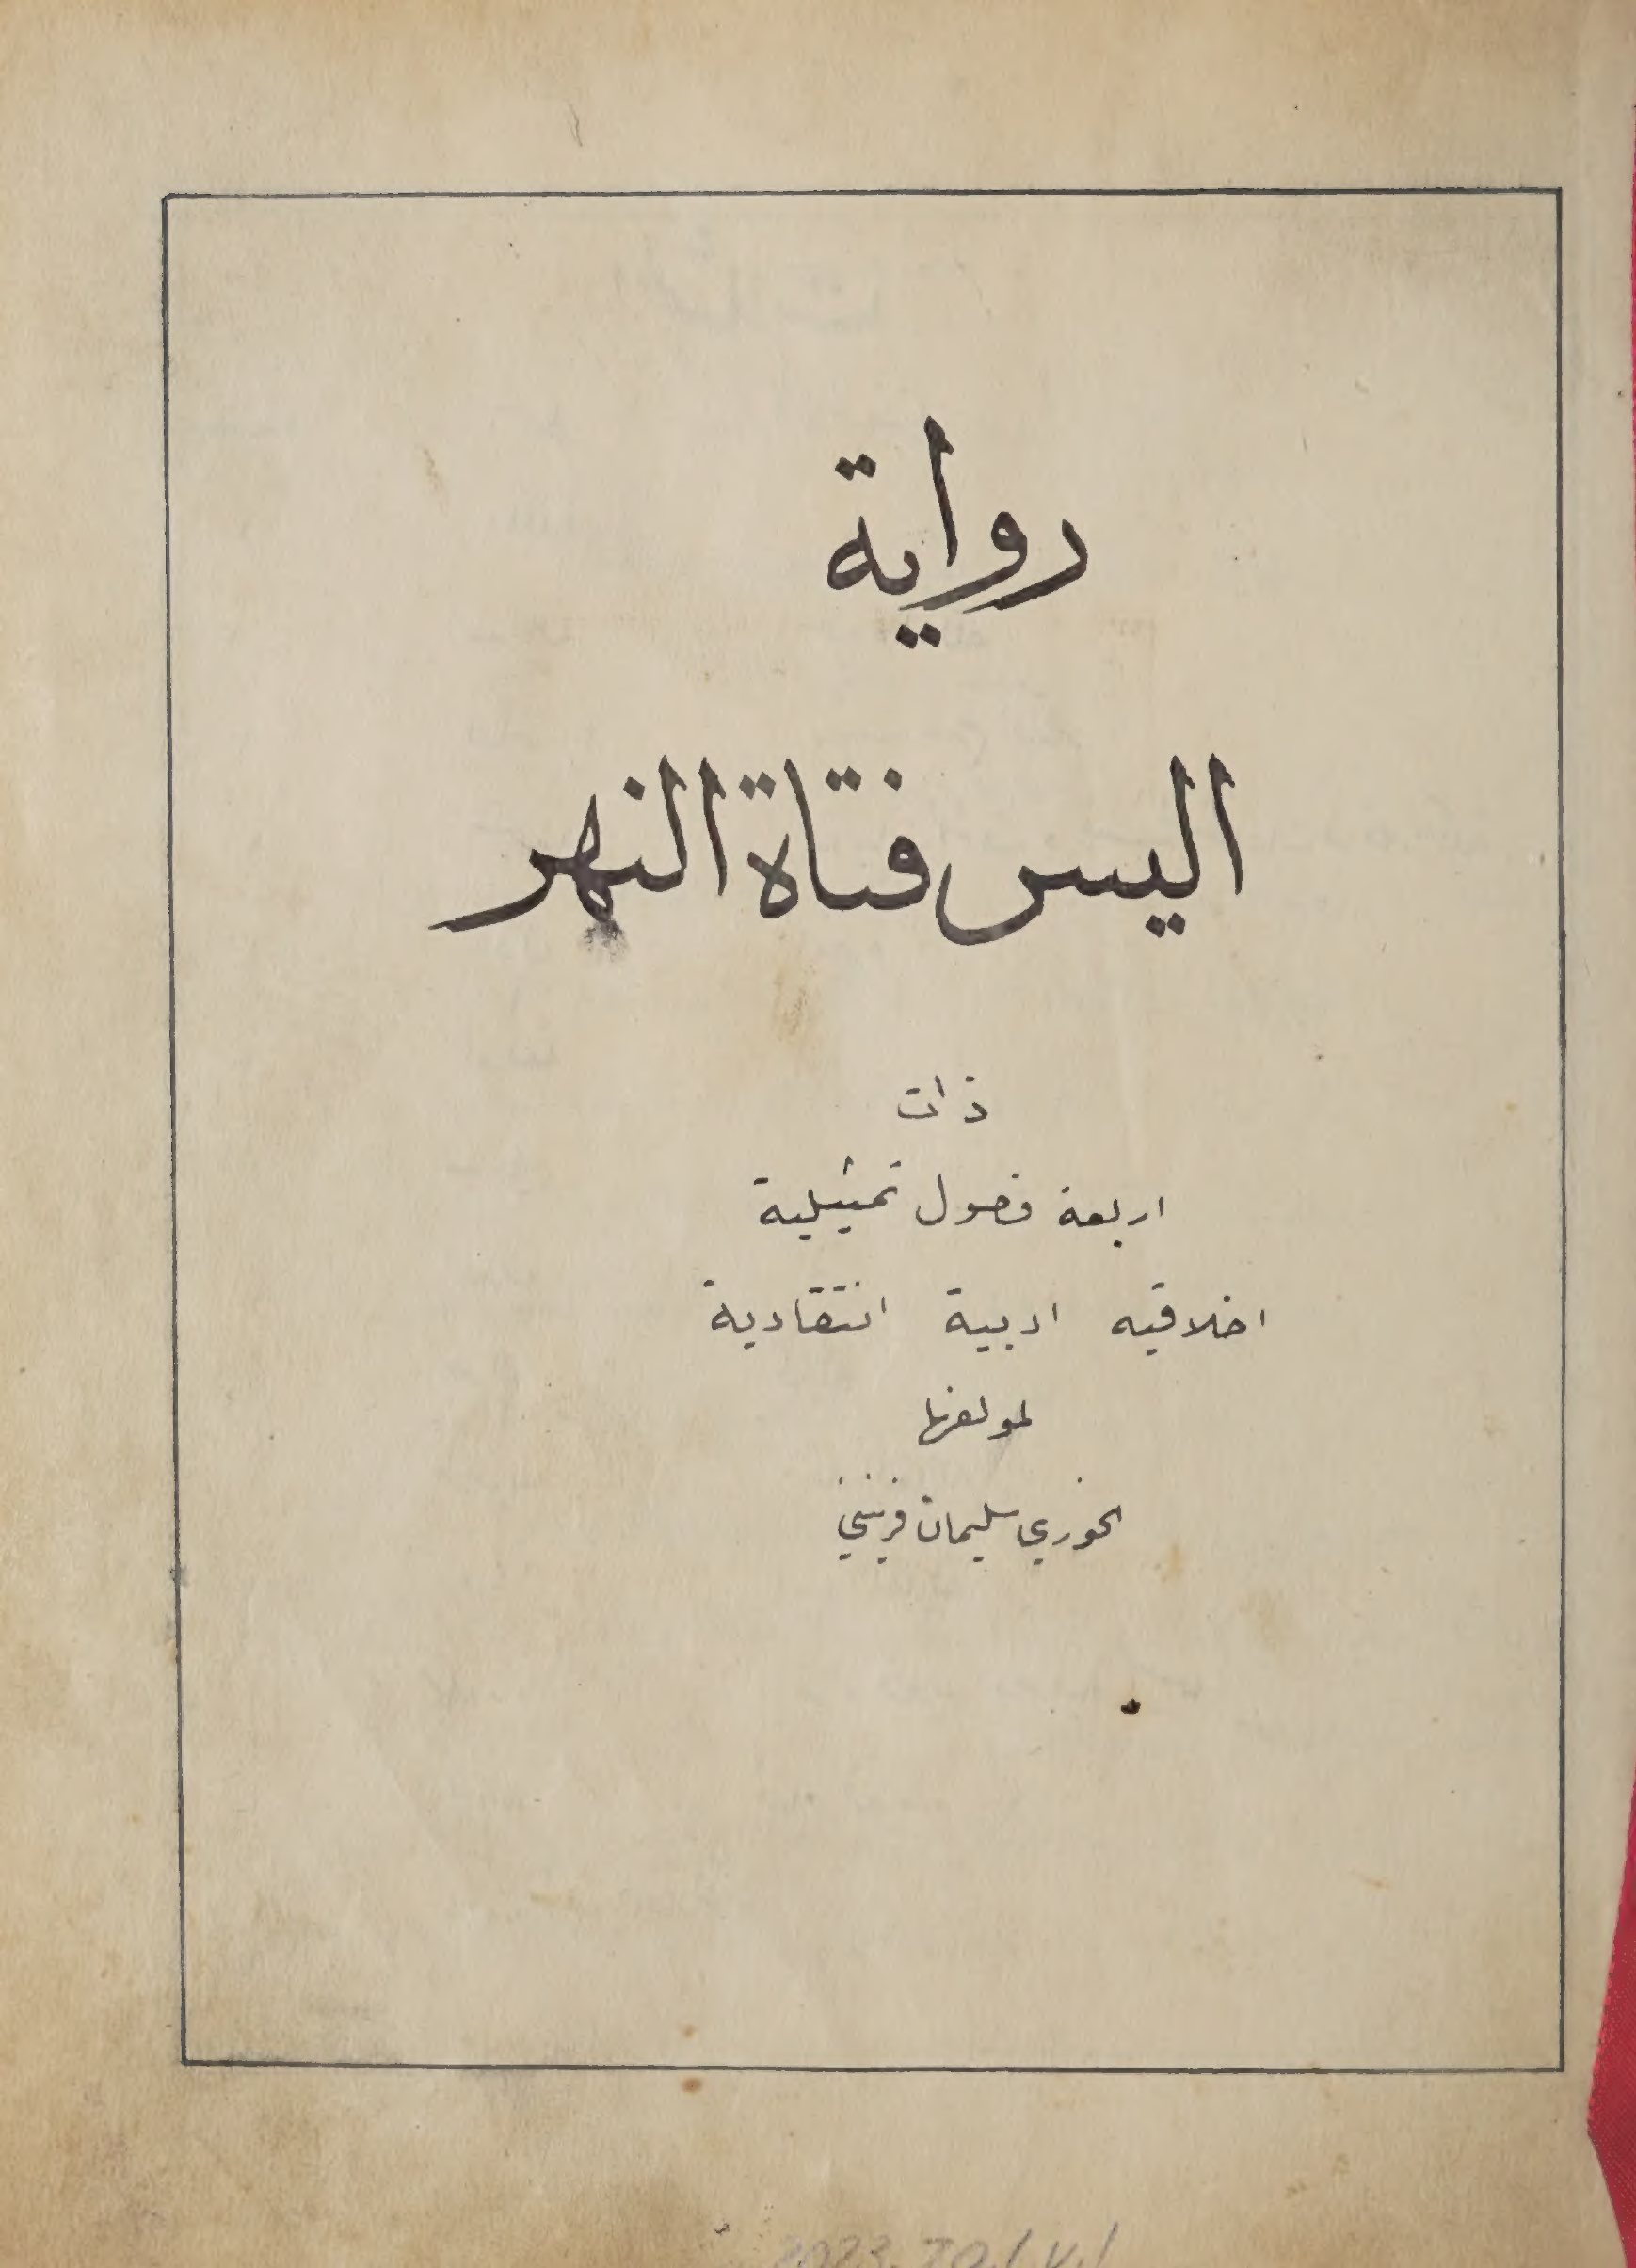 رواية
اليس فتاة النهر
ذات
اربعة فصول تمثيلية
اخلاقيه ادبية انتقادية
لمولفها
الخوري سليمان فرنيني